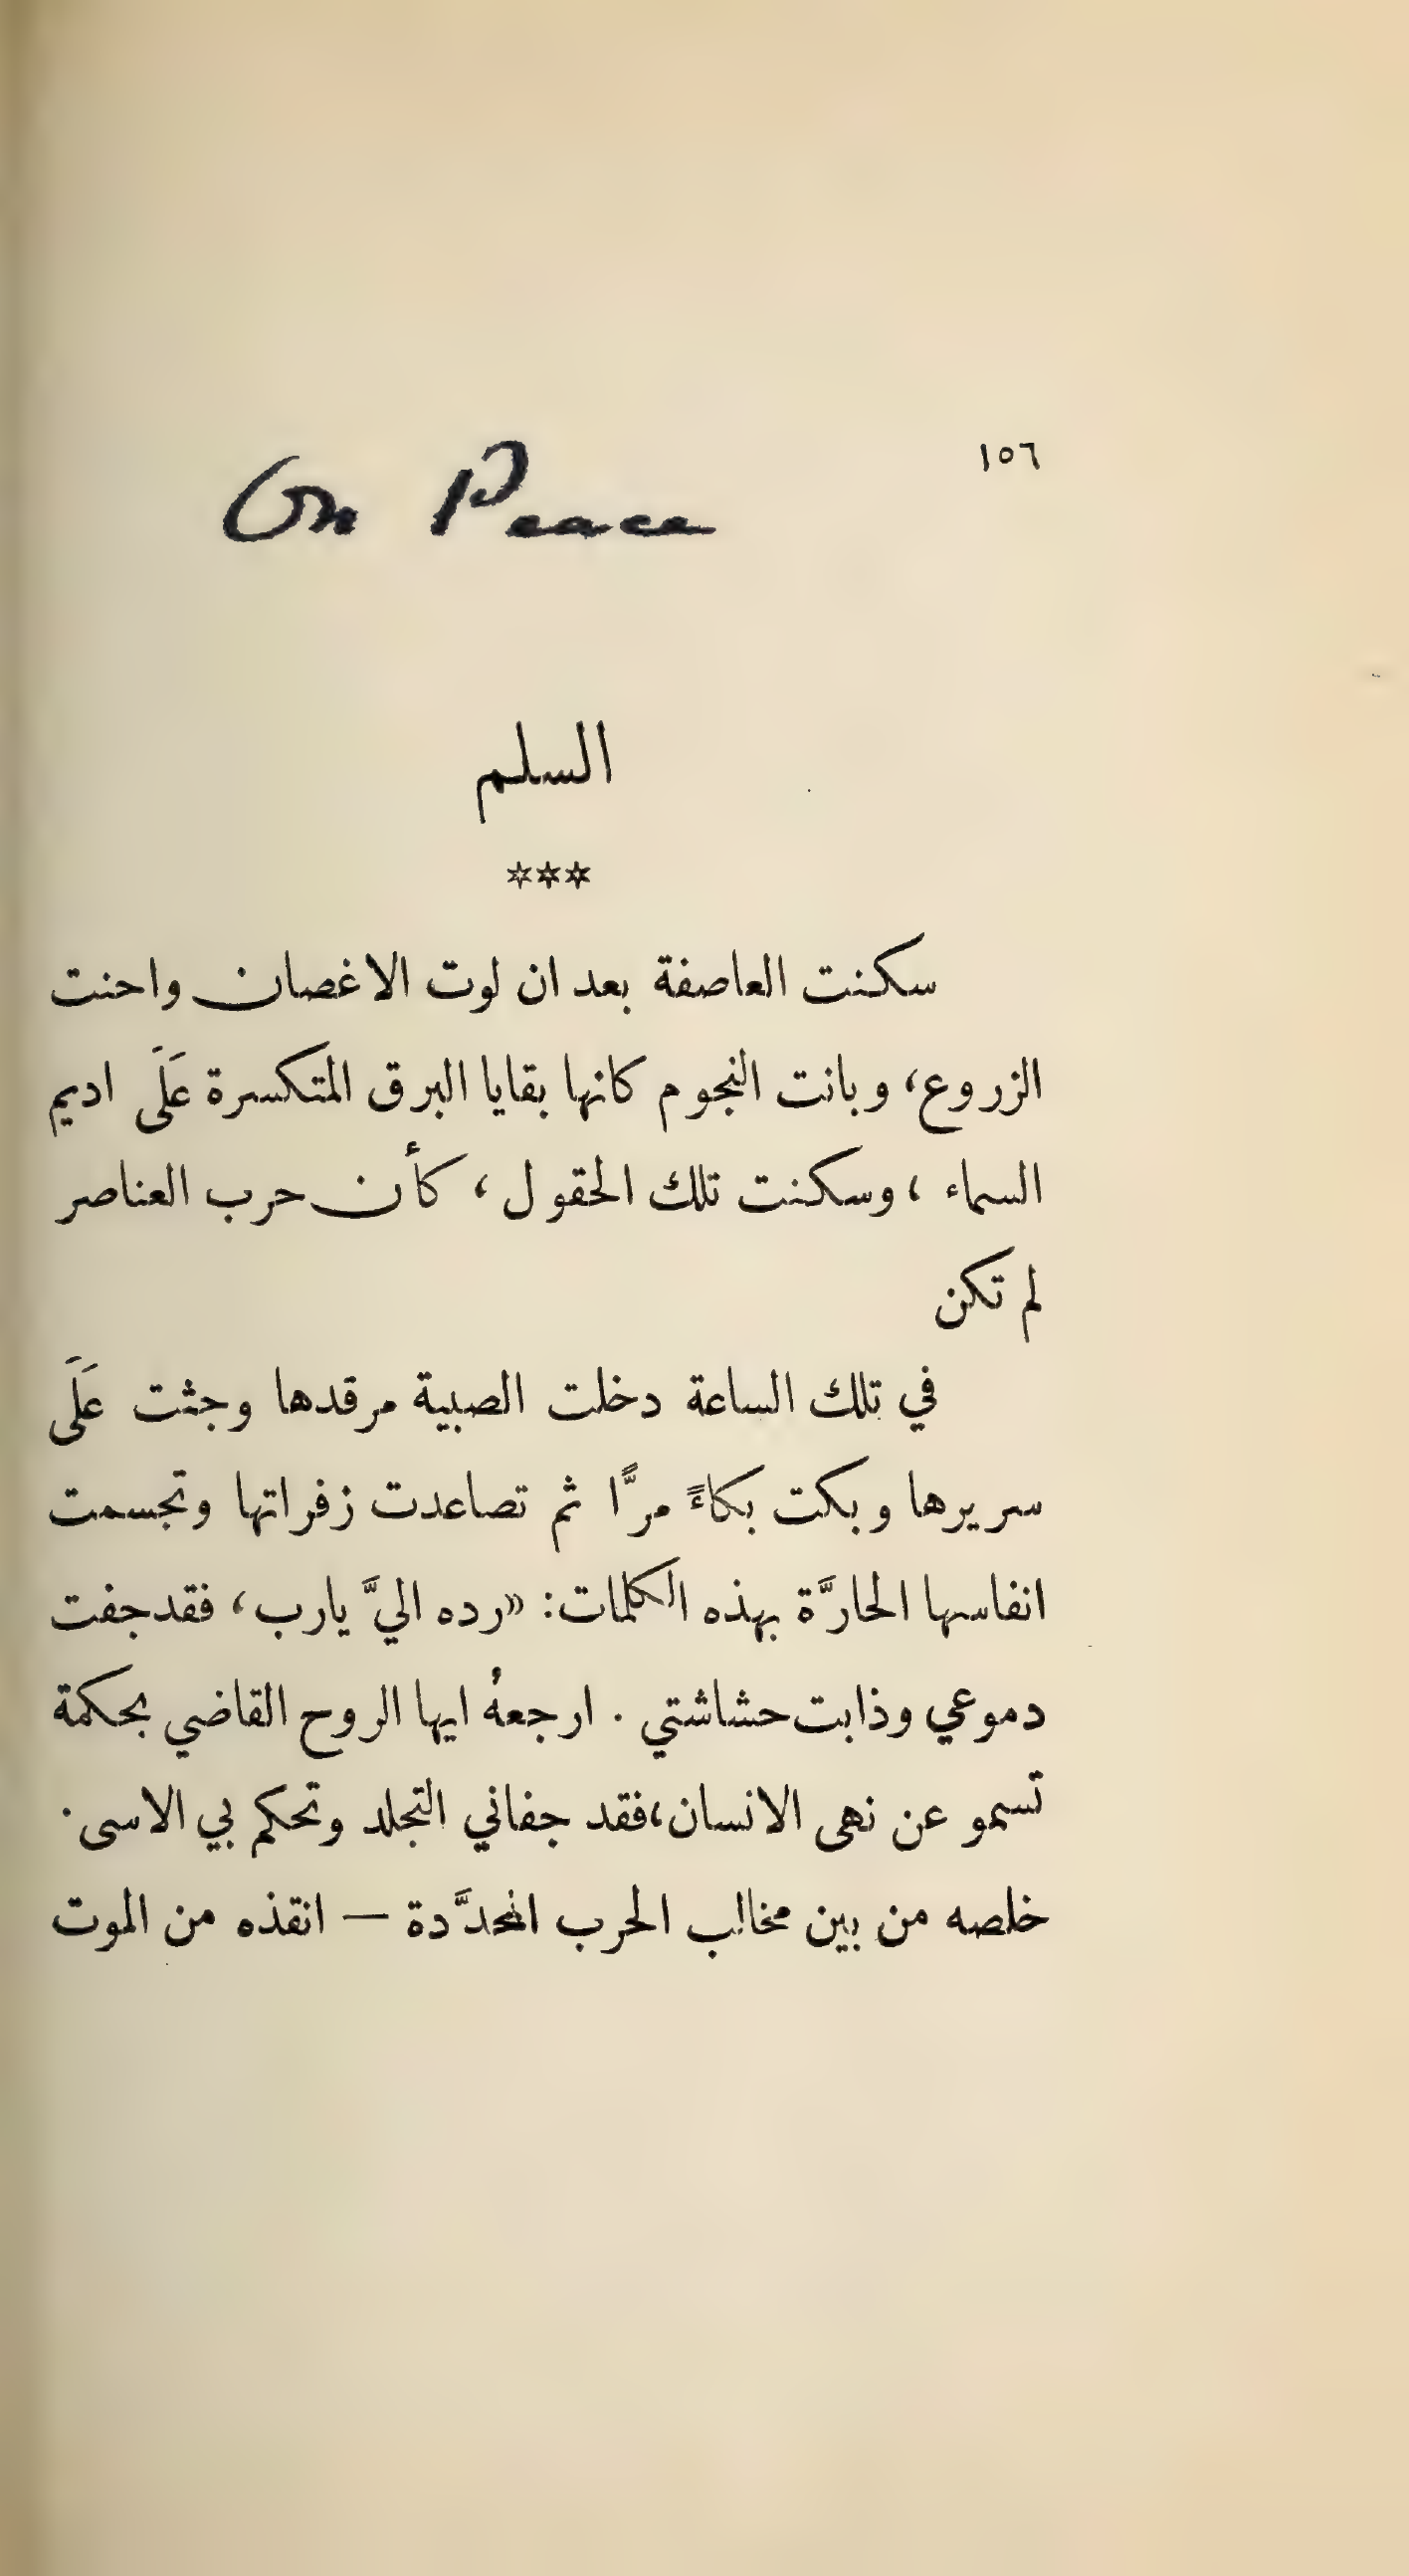 ١٥٦
On Peace
السلم
***
سكنت العاصفة بعد ان لوت الاغصان واحنت
الزروع، وبانت النجوم كانها بقايا البرق المتكسرة عَلَى اديم
السماء ، وسكنت تلك الحقول ، كأن حرب العناصر
لم تكن
في تلك الساعة دخلت الصبية مرقدها وجثت عَلَى
سريرها وبكت بكاءً مرًّا ثم تصاعدت زفراتها وتجسمت
انفاسها الحارَّة بهذه الكلمات: «رده اليَّ يارب، فقد جفت
دموعي وذابت حشاشتي . ارجعهُ ايها الروح القاضي بحكمة
تسمو عن نهى الانسان، فقد جفاني التجلد وتحكم بي الاسى .
خلصه من بين مخالب الحرب المحدَّدة — انقذه من الموت